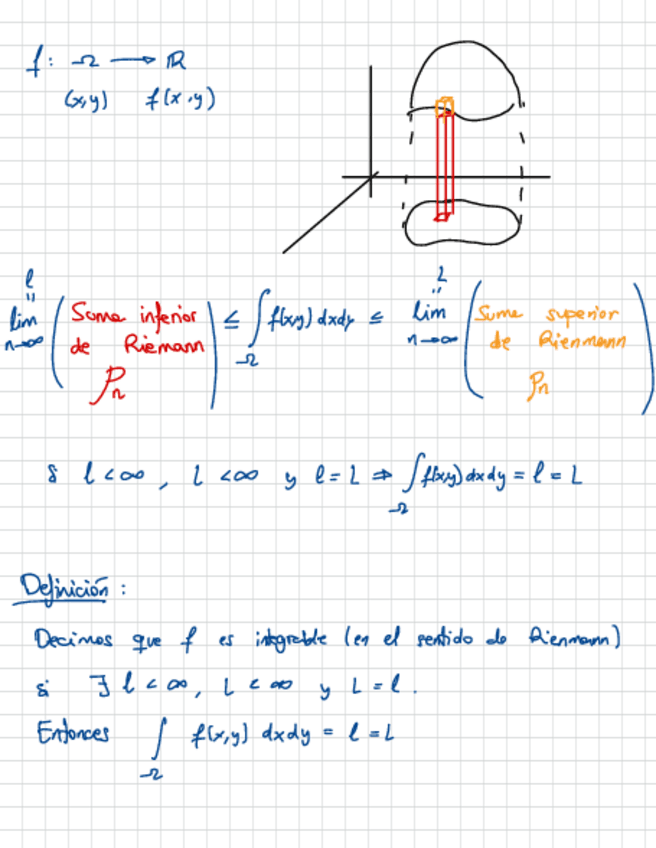 f: Ω → ℝ
(x,y) f(x,y)
l = lim n→∞ (Suma inferior de Riemann Pn) ≤ ∫Ω f(x,y) dxdy ≤ L = lim n→∞ (Suma superior de Rienmann Pn)
Si l < ∞, L < ∞ y l = L ⇒ ∫Ω f(x,y) dxdy = l = L
Definición:
Decimos que f es integrable (en el sentido de Rienmann)
si ∃ l < ∞, L < ∞ y L = l.
Entonces ∫Ω f(x,y) dxdy = l = L